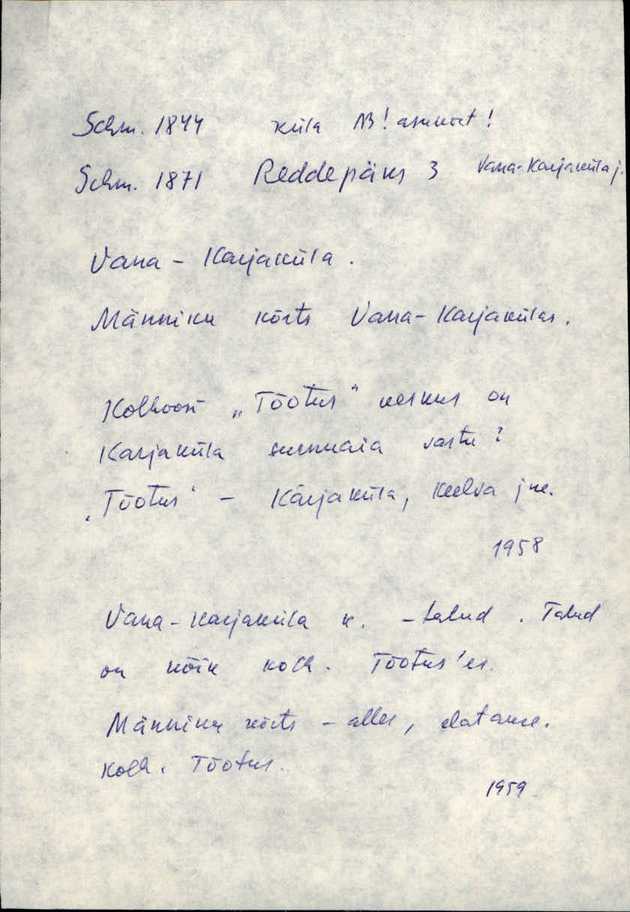 Schm. 1844 küla NB! asunoit!
Schm. 1871 Reddepäks 3 Vana-Karjaküla j.
Vana-Karjaküla.
Männiku kõrts Vana-Karjakülas.
Kolhoosi „Tõotus" keskus on
Karjaküla surnuaia vastu?
„Tõotus" - Karjaküla, Keelva jne.
1958
Vana-Karjaküla k. - talud. Talud
on kõik kolh. Tõotus'es.
Männiku kõrts - alles, elatakse.
Kolh. Tõotus.
1959